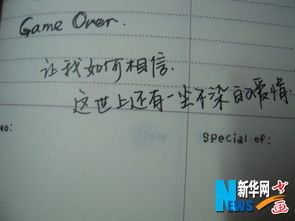 Game Over.
让我如何相信.
这世上还有一尘不染的爱情.
No:
Special of:
NEWS
新华网